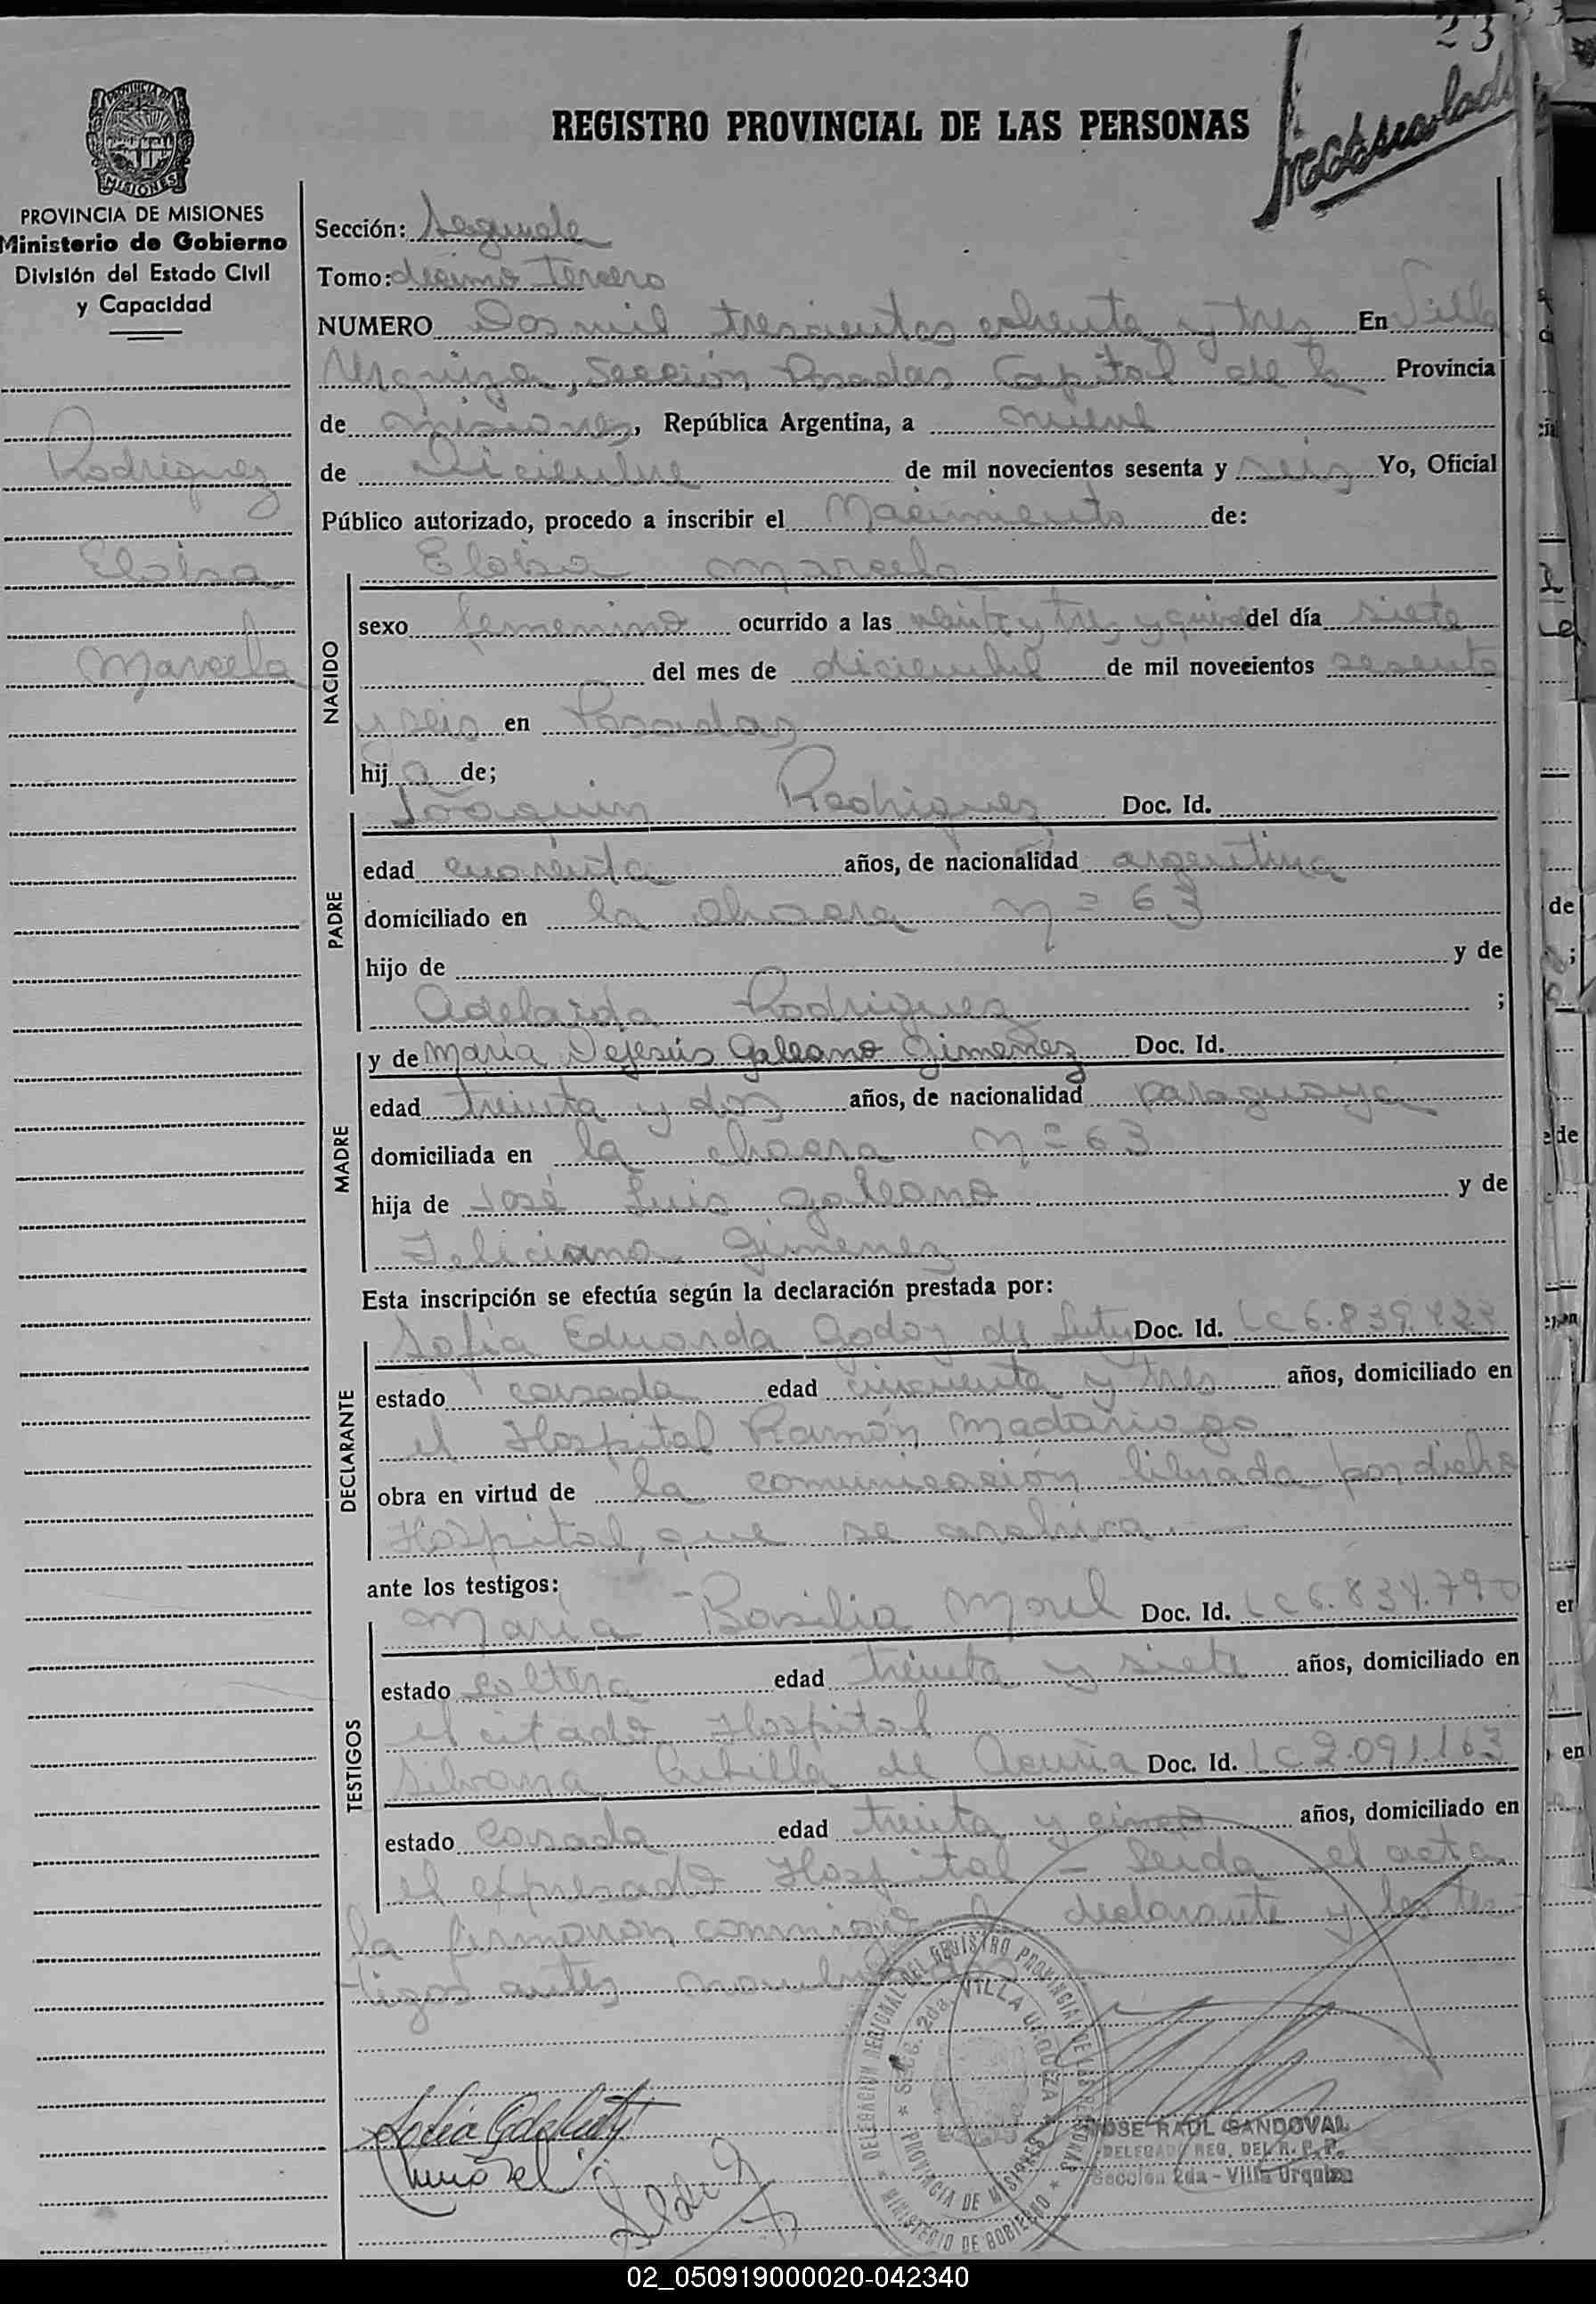 23
REGISTRO PROVINCIAL DE LAS PERSONAS
PROVINCIA DE
MISIONES
PROVINCIA DE MISIONES
Ministerio de Gobierno
División del Estado Civil
y Capacidad
Rodriguez
Eloisa
Marcela
Sección: Segunda
Tomo: décimo tercero
NUMERO Dos mil trescientos ochenta y tres En Villa
Urquiza, Sección Posadas Capital de la Provincia
de Misiones, República Argentina, a nueve
de Diciembre de mil novecientos sesenta y seis Yo, Oficial
Público autorizado, procedo a inscribir el Nacimiento de:
Eloisa Marcela
NACIDO
sexo femenino ocurrido a las veinte y tres y quince del día siete
del mes de diciembre de mil novecientos sesenta
y seis en Posadas
hij a de;
PADRE
Joaquin Rodriguez Doc. Id.
edad cuarenta años, de nacionalidad argentina
domiciliado en la chacra nº 63
hijo de y de
Adelaida Rodriguez ;
MADRE
y de Maria Dejesús Galeano Gimenez Doc. Id.
edad treinta y dos años, de nacionalidad paraguaya
domiciliada en la chacra nº 63
hija de José Luis Galeano y de
Feliciana Gimenez
Esta inscripción se efectúa según la declaración prestada por:
DECLARANTE
Sofia Eduarda Godoy de Doc. Id. LC 6.839.
estado casada edad cincuenta y tres años, domiciliado en
el Hospital Ramón Madariaga
obra en virtud de la comunicación librada por dicho
Hospital, que se archiva.
ante los testigos:
TESTIGOS
Maria Basilia Morel Doc. Id. LC 6.834.790
estado soltera edad treinta y siete años, domiciliado en
el citado Hospital
Silvana de Acuña Doc. Id. LC 2.091.163
estado casada edad treinta y cinco años, domiciliado en
el expresado Hospital - Leida el acta
la firmaron conmigo la declarante y los tes-
tigos antes
DELEGACION REGIONAL DEL REGISTRO PROVINCIAL DE LAS PERSONAS
Secc. 2da. VILLA URQUIZA
PROVINCIA DE MISIONES
MINISTERIO DE GOBIERNO
JOSE RAUL SANDOVAL
DELEGADO REG. DEL R. P. P.
Sección 2da - Villa Urquiza
02_050919000020-042340